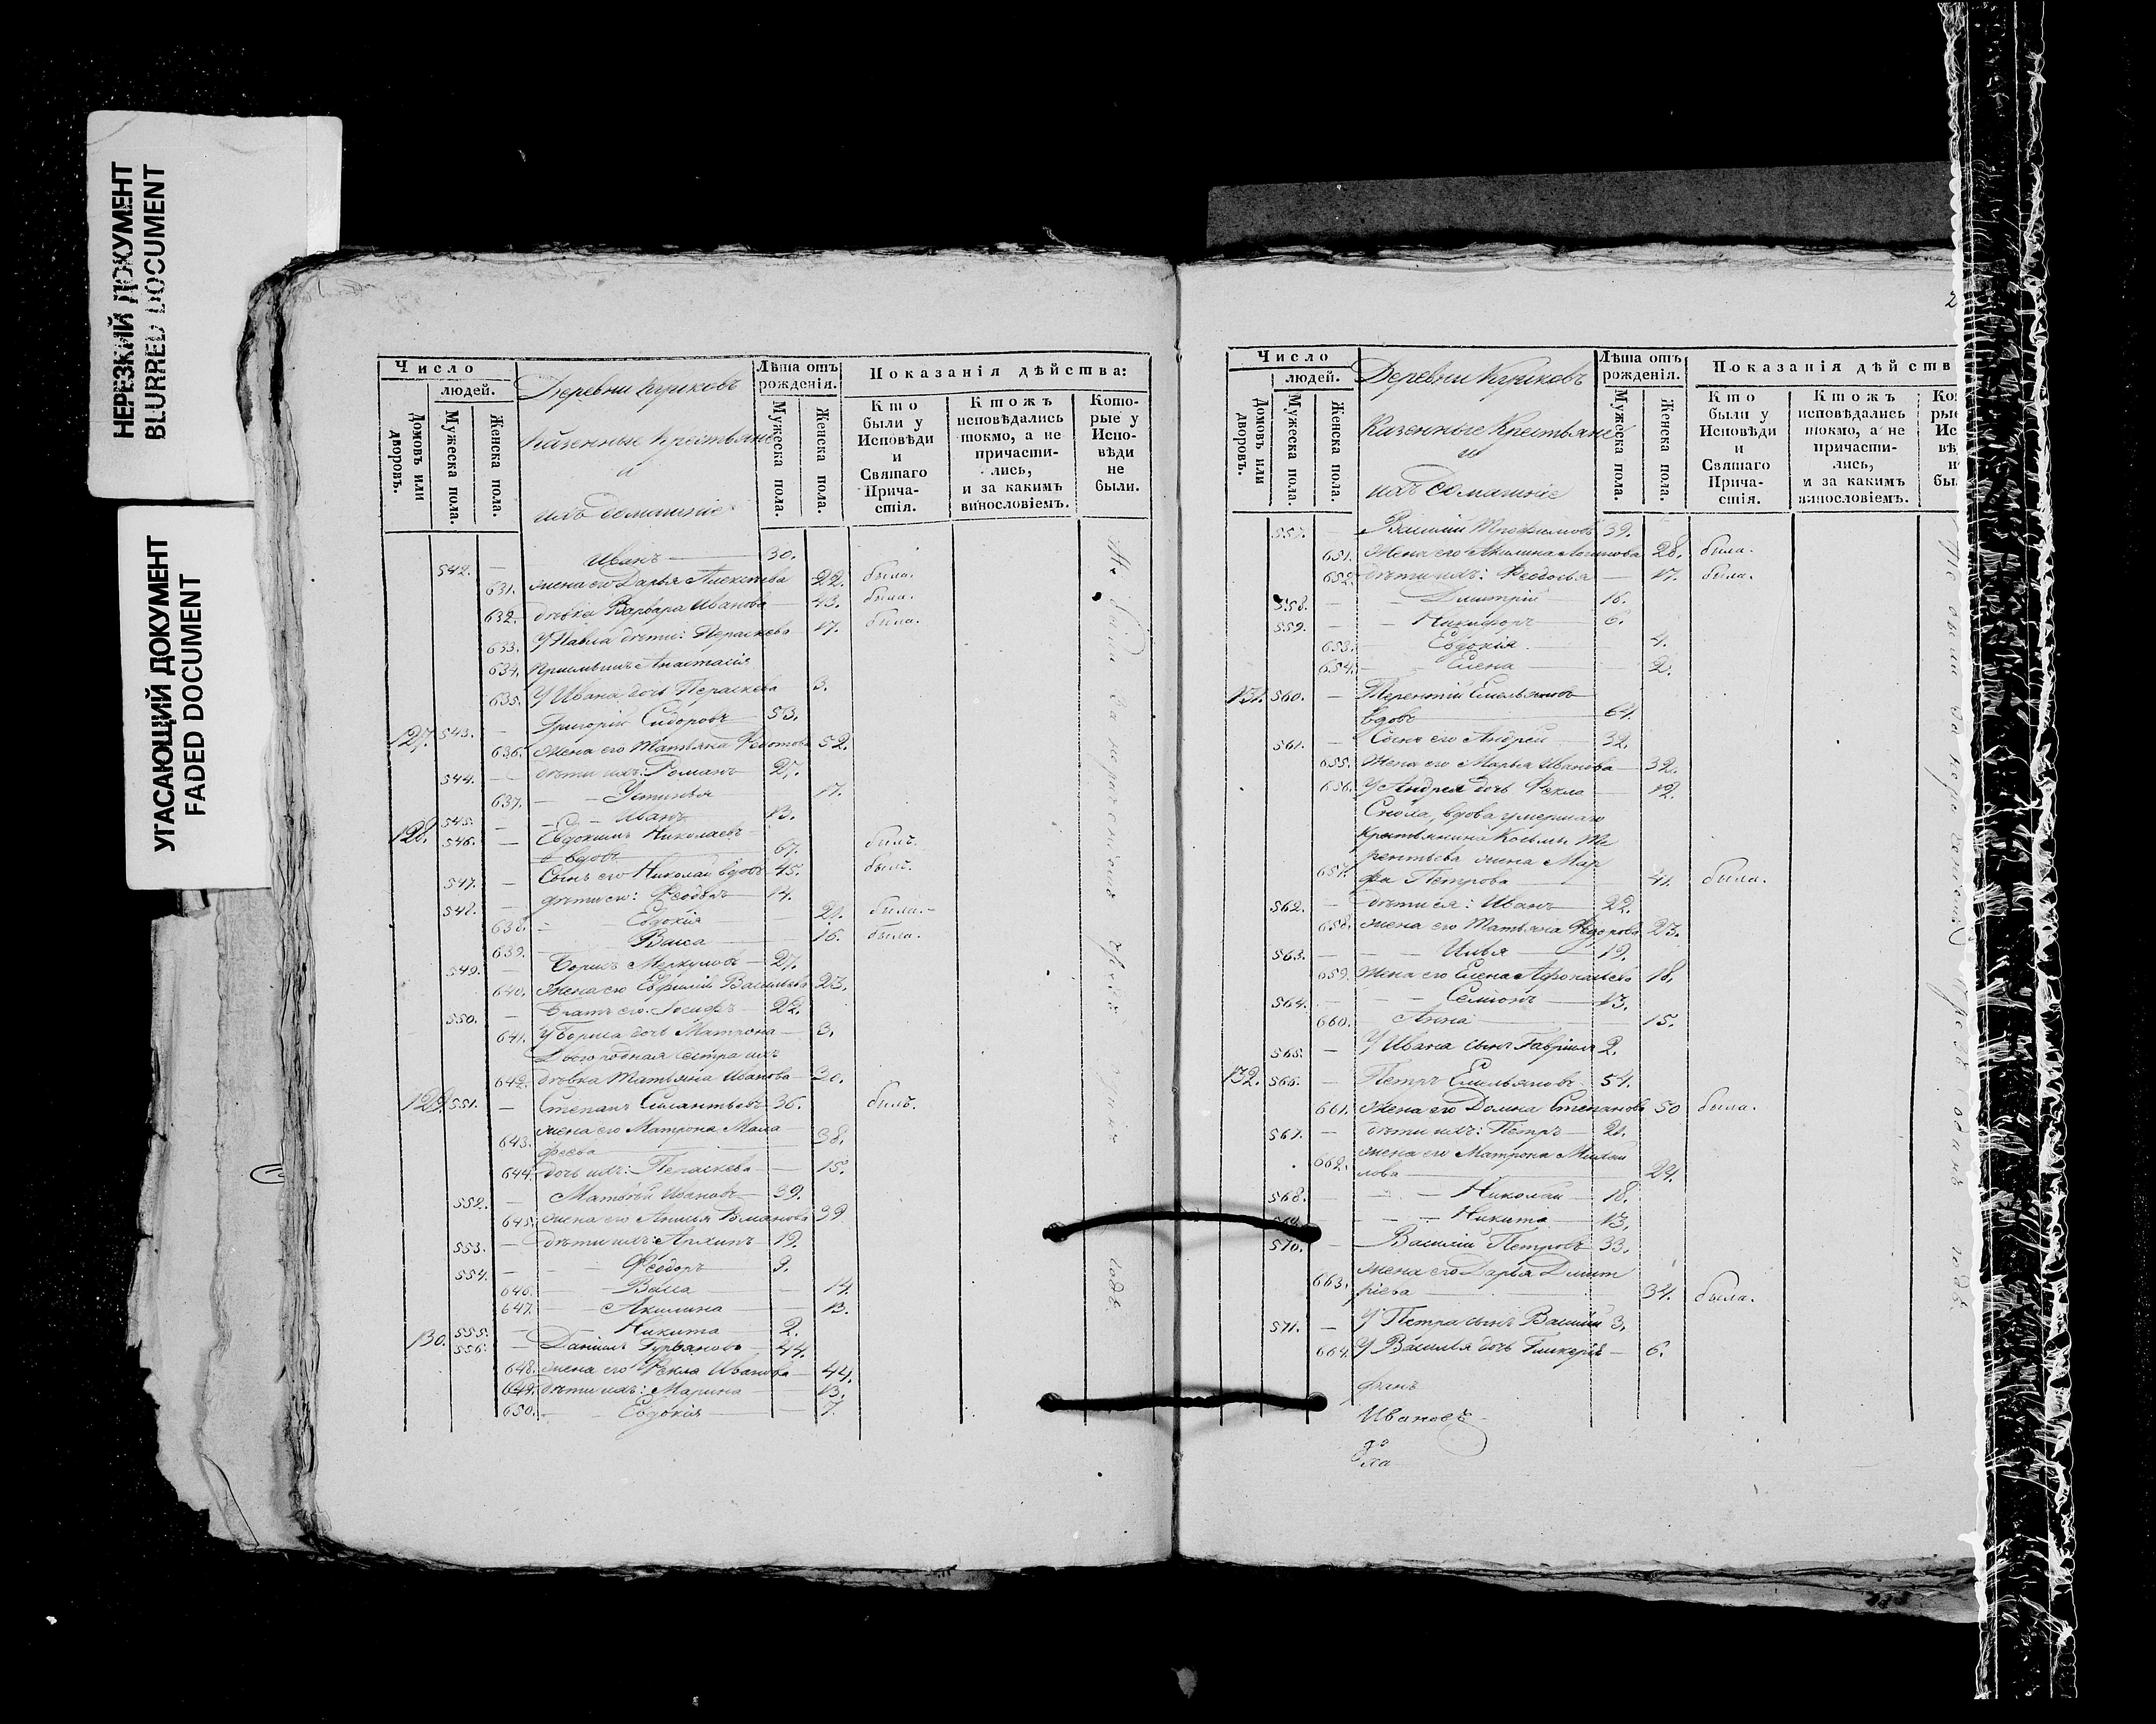 НЕРЕЗКИЙ ДОКУМЕНТ
BLURRED DOCUMENT
УГАСАЮЩИЙ ДОКУМЕНТ
FADED DOCUMENT
Число
людей.
Домовъ или дворовъ.
Мужеска пола.
Женска пола.
Деревни
Казенные Крестьяне
и
ихъ домашніе
Лѣта отъ рожденія.
Мужеска пола.
Женска пола.
Показанія дѣйства:
Кто были у Исповѣди и Святаго Прича-стія.
Ктожъ исповѣдались токмо, а не причасти-лись, и за какимъ винословіемъ.
Кото-рые у Испо-вѣди не были.
542. — Иванъ — 30.
631. жена его Дарья Алексѣева 22. была.
632. дѣвка Варвара Иванова — 43. была.
633. У Павла дѣти: Пераскева — 17. была.
634. Анастасія
635. У Ивана дочь Пераскева 3.
127. 543. — Григорій Сидоровъ — 53.
636. жена его Татьяна Федотова 52.
544. — дѣти ихъ: Романъ — 27.
637. — — Устинья 17.
545. — — Иванъ 13.
128. 546. — Евдокимъ Николаевъ
вдовъ — 67. былъ.
547. — Сынъ его Николай вдовъ 45. былъ.
548. — дѣти его: 14.
638. — Евдокія — 21. была.
639. — Васса — 16. была.
549. — Борисъ Меркуловъ — 27.
640. жена его Евфимія Васильева 23.
550. — Братъ его Іосифъ — 22.
641. У Бориса дочь Матрона — 3.
Двоюродная сестра ихъ
642. дѣвка Татьяна Иванова — 30.
129. 551. — Степанъ Силантьевъ 36. былъ.
643. жена его Матрона
феева 38.
644. дочь ихъ: Пераскева — 15.
552. — Матвѣй Ивановъ — 39.
645. жена его 39
553. — дѣти ихъ: Архипъ — 19.
554. — — Феодоръ 9.
646. — Васса — 14.
647. — Акилина — 13.
555. — Никита — 2.
130. 556. — Даніилъ Гурьяновъ — 44.
648. жена его Фекла Иванова — 44.
649. дѣти ихъ: Марина — 13.
650. — Евдокія — 7.
Число
людей.
Домовъ или дворовъ.
Мужеска пола.
Женска пола.
Деревни
Казенные Крестьяне
и
ихъ домашніе
Лѣта отъ рожденія.
Мужеска пола.
Женска пола.
Показанія дѣйств
Кто были у Исповѣди и Святаго Прича-стія.
Ктожъ исповѣдались токмо, а не причасти-лись, и за какимъ винословіемъ.
557. — Василій 39.
651. жена его Акилина Логинова 28. была.
652. дѣти ихъ: Феодосья — 17. была.
558. — — Дмитрій — 16.
559. — — Никифоръ — 6.
653. — Евдокія 4.
654. — Елена — 2.
131. 560. — Терентій Емельяновъ
вдовъ — 64.
561. — Сынъ его Андрей — 32.
655. Жена его Марья Иванова — 32.
656. У Андрея дочь Фекла — 12.
Сноха, вдова умершаго
крестьянина Козьмы Те
рентьева жена Мар
657. фа Петрова — 41. была.
562. — дѣти ея: Иванъ — 22.
658. жена его Татьяна Федорова 23.
563. — — Илья — 19.
659. жена его Елена 18.
564. — — Семіонъ — 13.
660. Анна — 15.
565. — У Ивана сынъ Гавріилъ 2.
132. 566. — Петръ Емельяновъ — 54.
661. жена его Домна Степанова 50 была.
567. — дѣти ихъ: Петръ — 21.
662. жена его Матрона Михаи
лова — 24.
568. — — Николай — 18.
— — Никита — 13.
570. — Василій Петровъ 33.
663. жена его Дарья Дмит
ріева — 34. была.
571. — У Петра сынъ Василій 3.
664. У Василья дочь Гликерія — 6.
Ивановъ